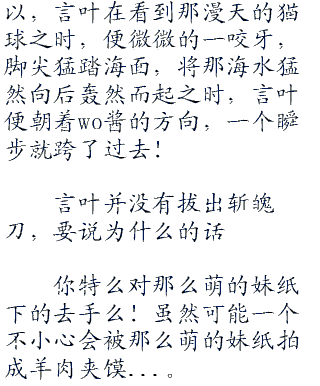 以，言叶在看到那漫天的猫
球之时，便微微的一咬牙，
脚尖猛踏海面，将那海水猛
然向后轰然而起之时，言叶
便朝着wo酱的方向，一个瞬
步就跨了过去！
言叶并没有拔出斩魄
刀，要说为什么的话
你特么对那么萌的妹纸
下的去手么！虽然可能一个
不小心会被那么萌的妹纸拍
成羊肉夹馍...。